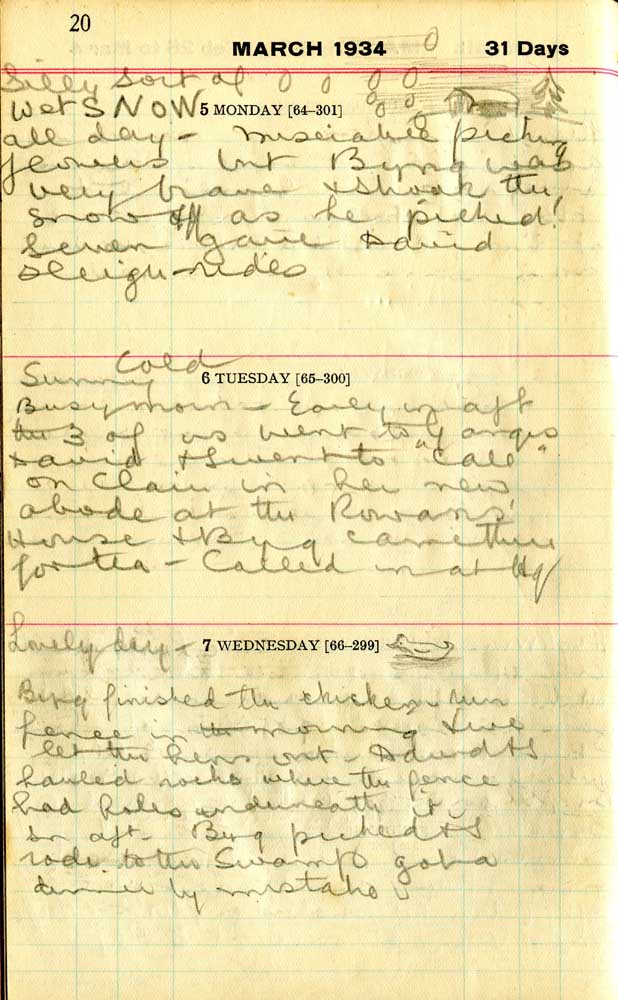 20
MARCH 1934 31 Days
Silly sort of
wet SNOW 5 MONDAY [64–301]
all day - miserable picking
flowers but Byng was
very brave & shook the
snow off as he picked!
Seven gave David
sleigh-rides
Cold
Sunny 6 TUESDAY [65–300]
Busy morn - Early in aft
the 3 of us went to Ganges
David & I went to "call"
on Clair in her new
abode at the Rowans'
House & Byng came there
for tea - Called in at
Lovely day - 7 WEDNESDAY [66–299]
Byng finished the chicken run
fence in the morning & we
let the hens out - David & I
hauled rocks where the fence
had holes underneath it
in aft - Byng picked & I
rode to the Swamp got a
by mistake